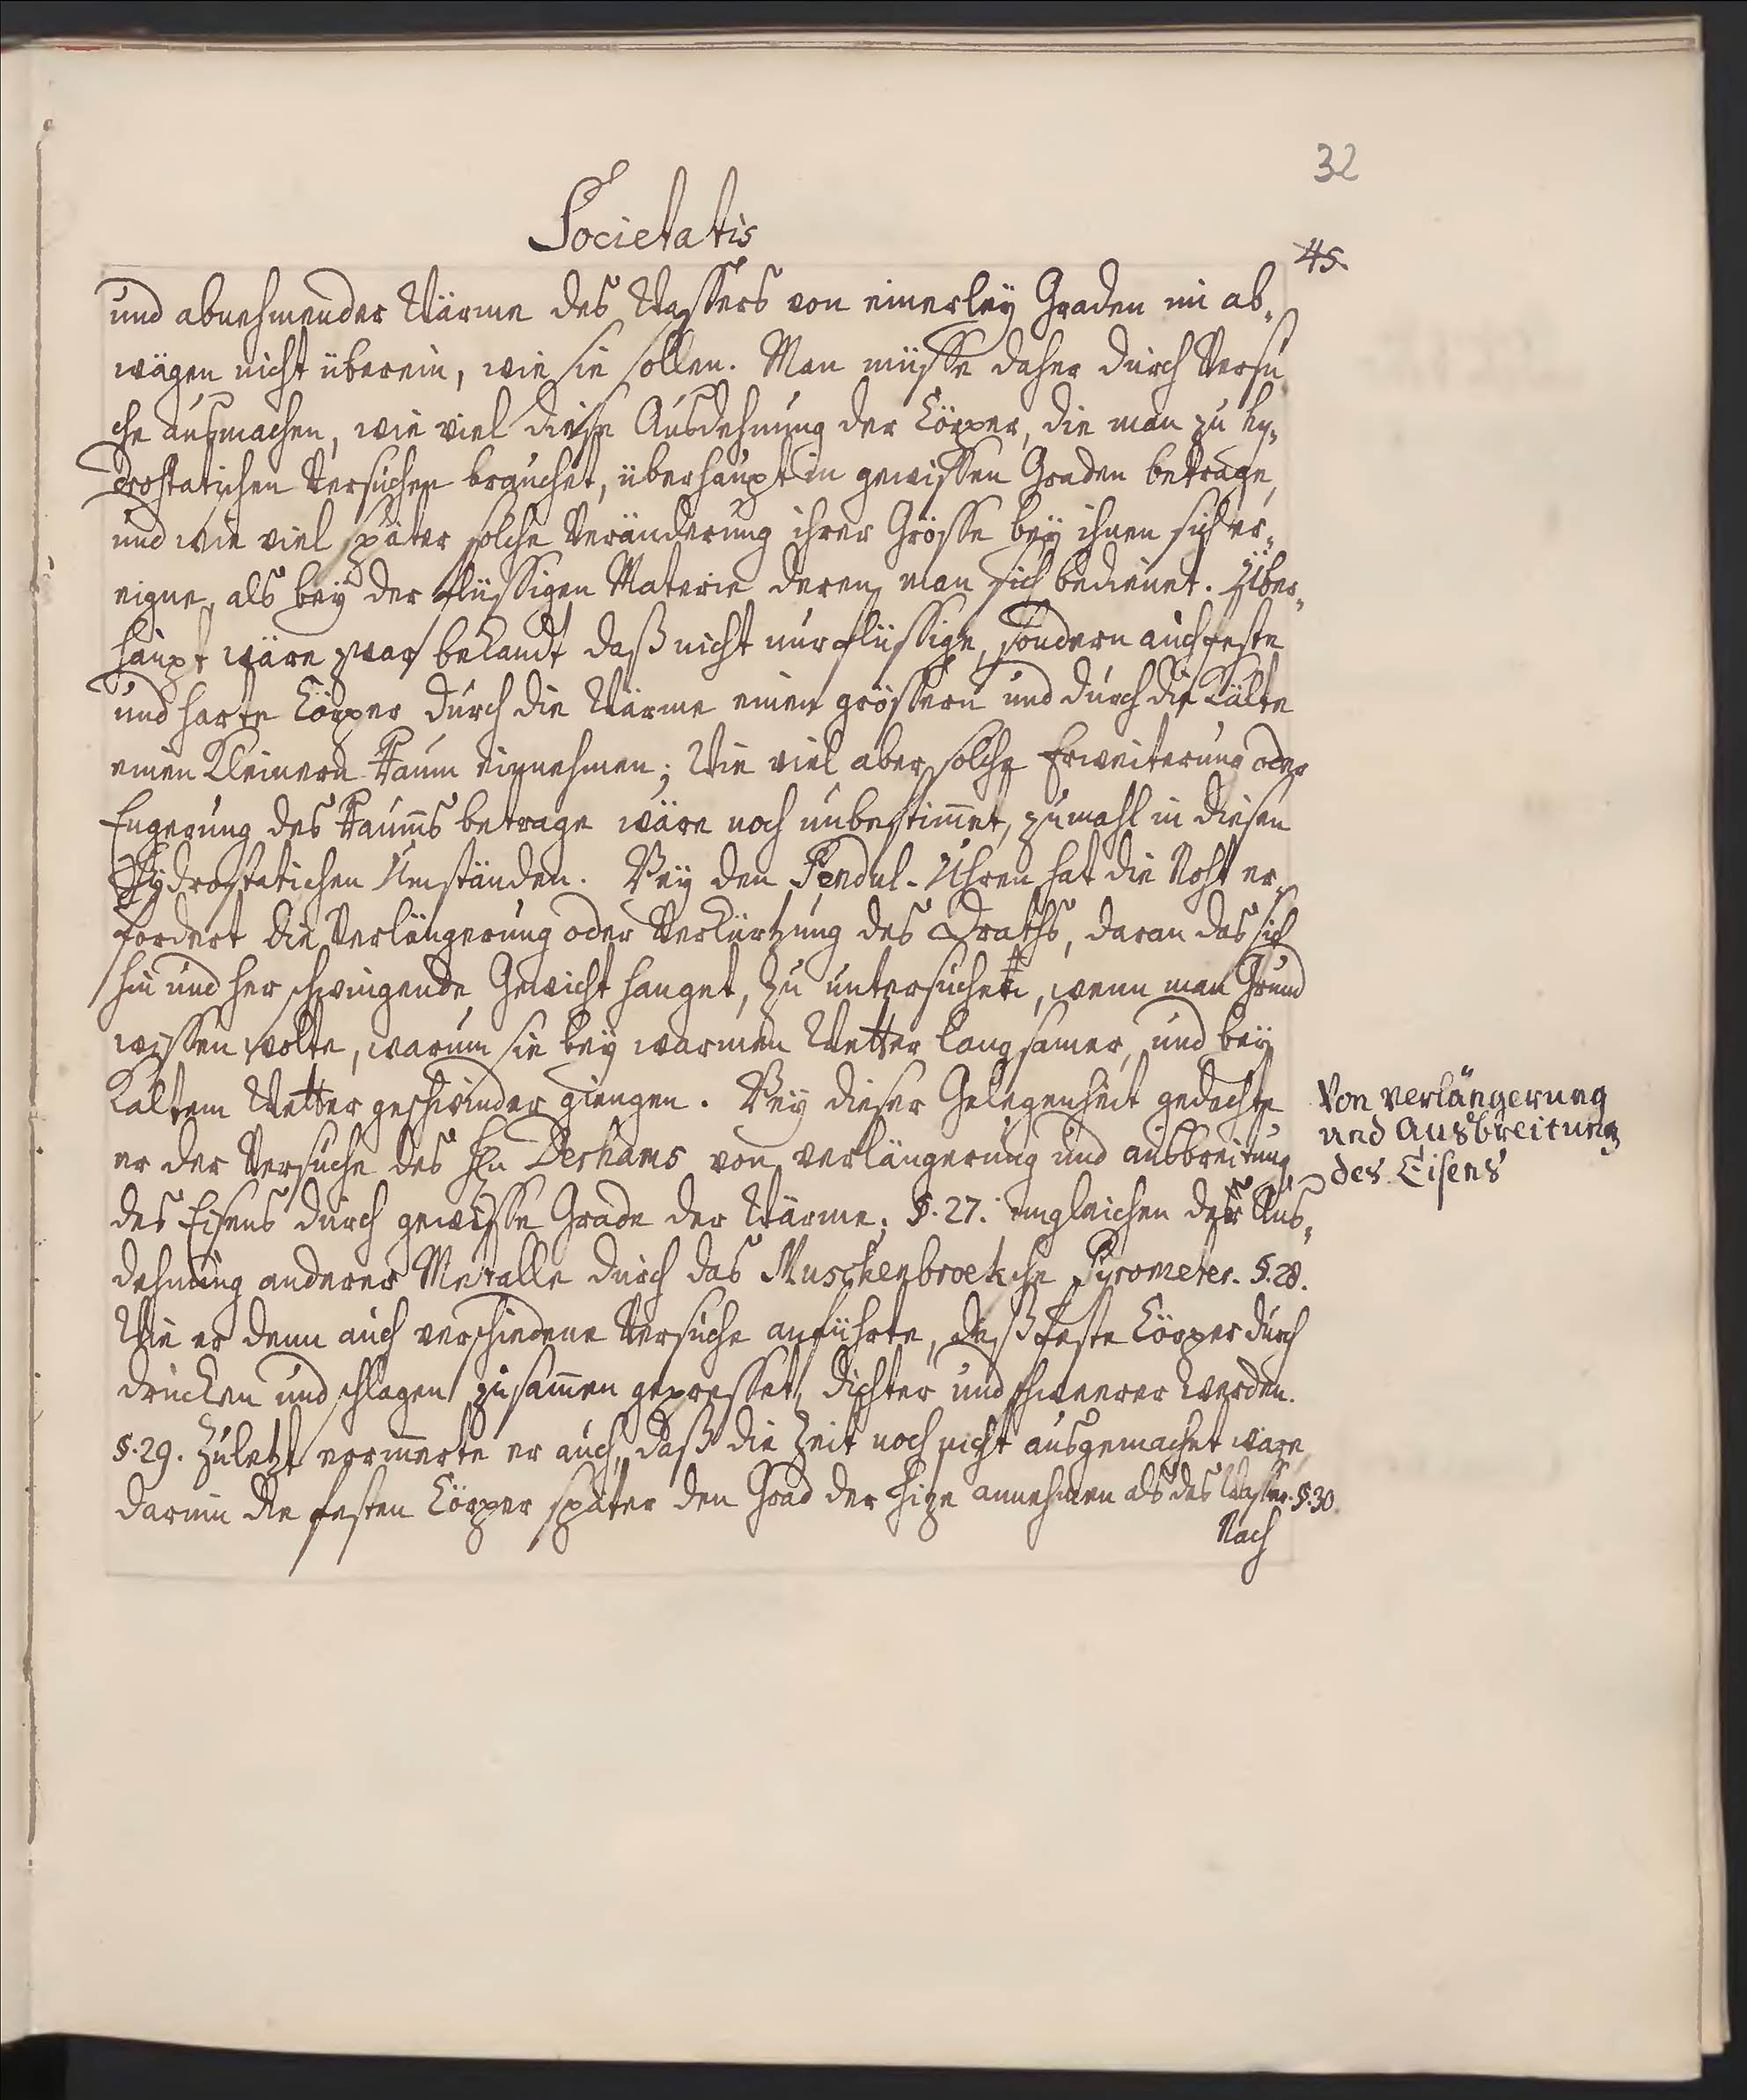 32
Societatis
45.
und abnehmender Wärme des Wassers von einerley Graden im ab-
wägen nicht überein, wie sie sollen. Man müsse daher durch Versu
che ausmachen, wie viel diese Ausdehnung der Cörper, die man zu hy-
drostatischen Versuchen brauchet, überhaupt in gewissen Graden betrage,
und wie viel später solche Veränderung ihrer Grösse bey ihnen sich er-
eigne, als bey der flüssigen Materie deren man sich bedienet. Über-
haupt wäre zwar bekandt daß nicht nur flüssige, sondern auch feste
und harte Cörper durch die Wärme einen grössern und durch die Kälte
einen kleinern Raum einnehmen; Wie viel aber solche Erweiterung oder
Engerung des Raums betrage wäre noch unbestimet, zumahl in diesen
Hydrostatischen Umständen. Bey den Pendul-Uhren hat die Noht er-
fordert die Verlängerung oder Verkürtzung des Draths, daran das sich
hin und her schwingende Gewicht hanget, zu untersuchen, wenn man Grund
wissen wolte, warum sie bey warmen Wetter langsamer, und bey
Kaltem Wetter geschwinder giengen. Bey dieser Gelegenheit gedachte
er der Versuche des Hn Derhams von verlängerung und ausbreitung
des Eisens durch gewisse Grade der Wärme; §. 27. imgleichen der Aus-
dehnung anderer Metalle durch das Muschenbroeksche Pyrometer. §. 28.
Wie er denn auch verschiedene Versuche anführte, daß feste Cörper durch
drucken und schlagen zusamen gepresset, dichter und schweerer werden.
§. 29. Zuletzt erinnerte er auch, daß die Zeit noch nicht ausgemachet wäre
darinn die festen Cörper später den Grad der Hize annehmen als das Wasser. §. 30.
Nach
Von verlängerung
und Ausbreitung
des Eisens